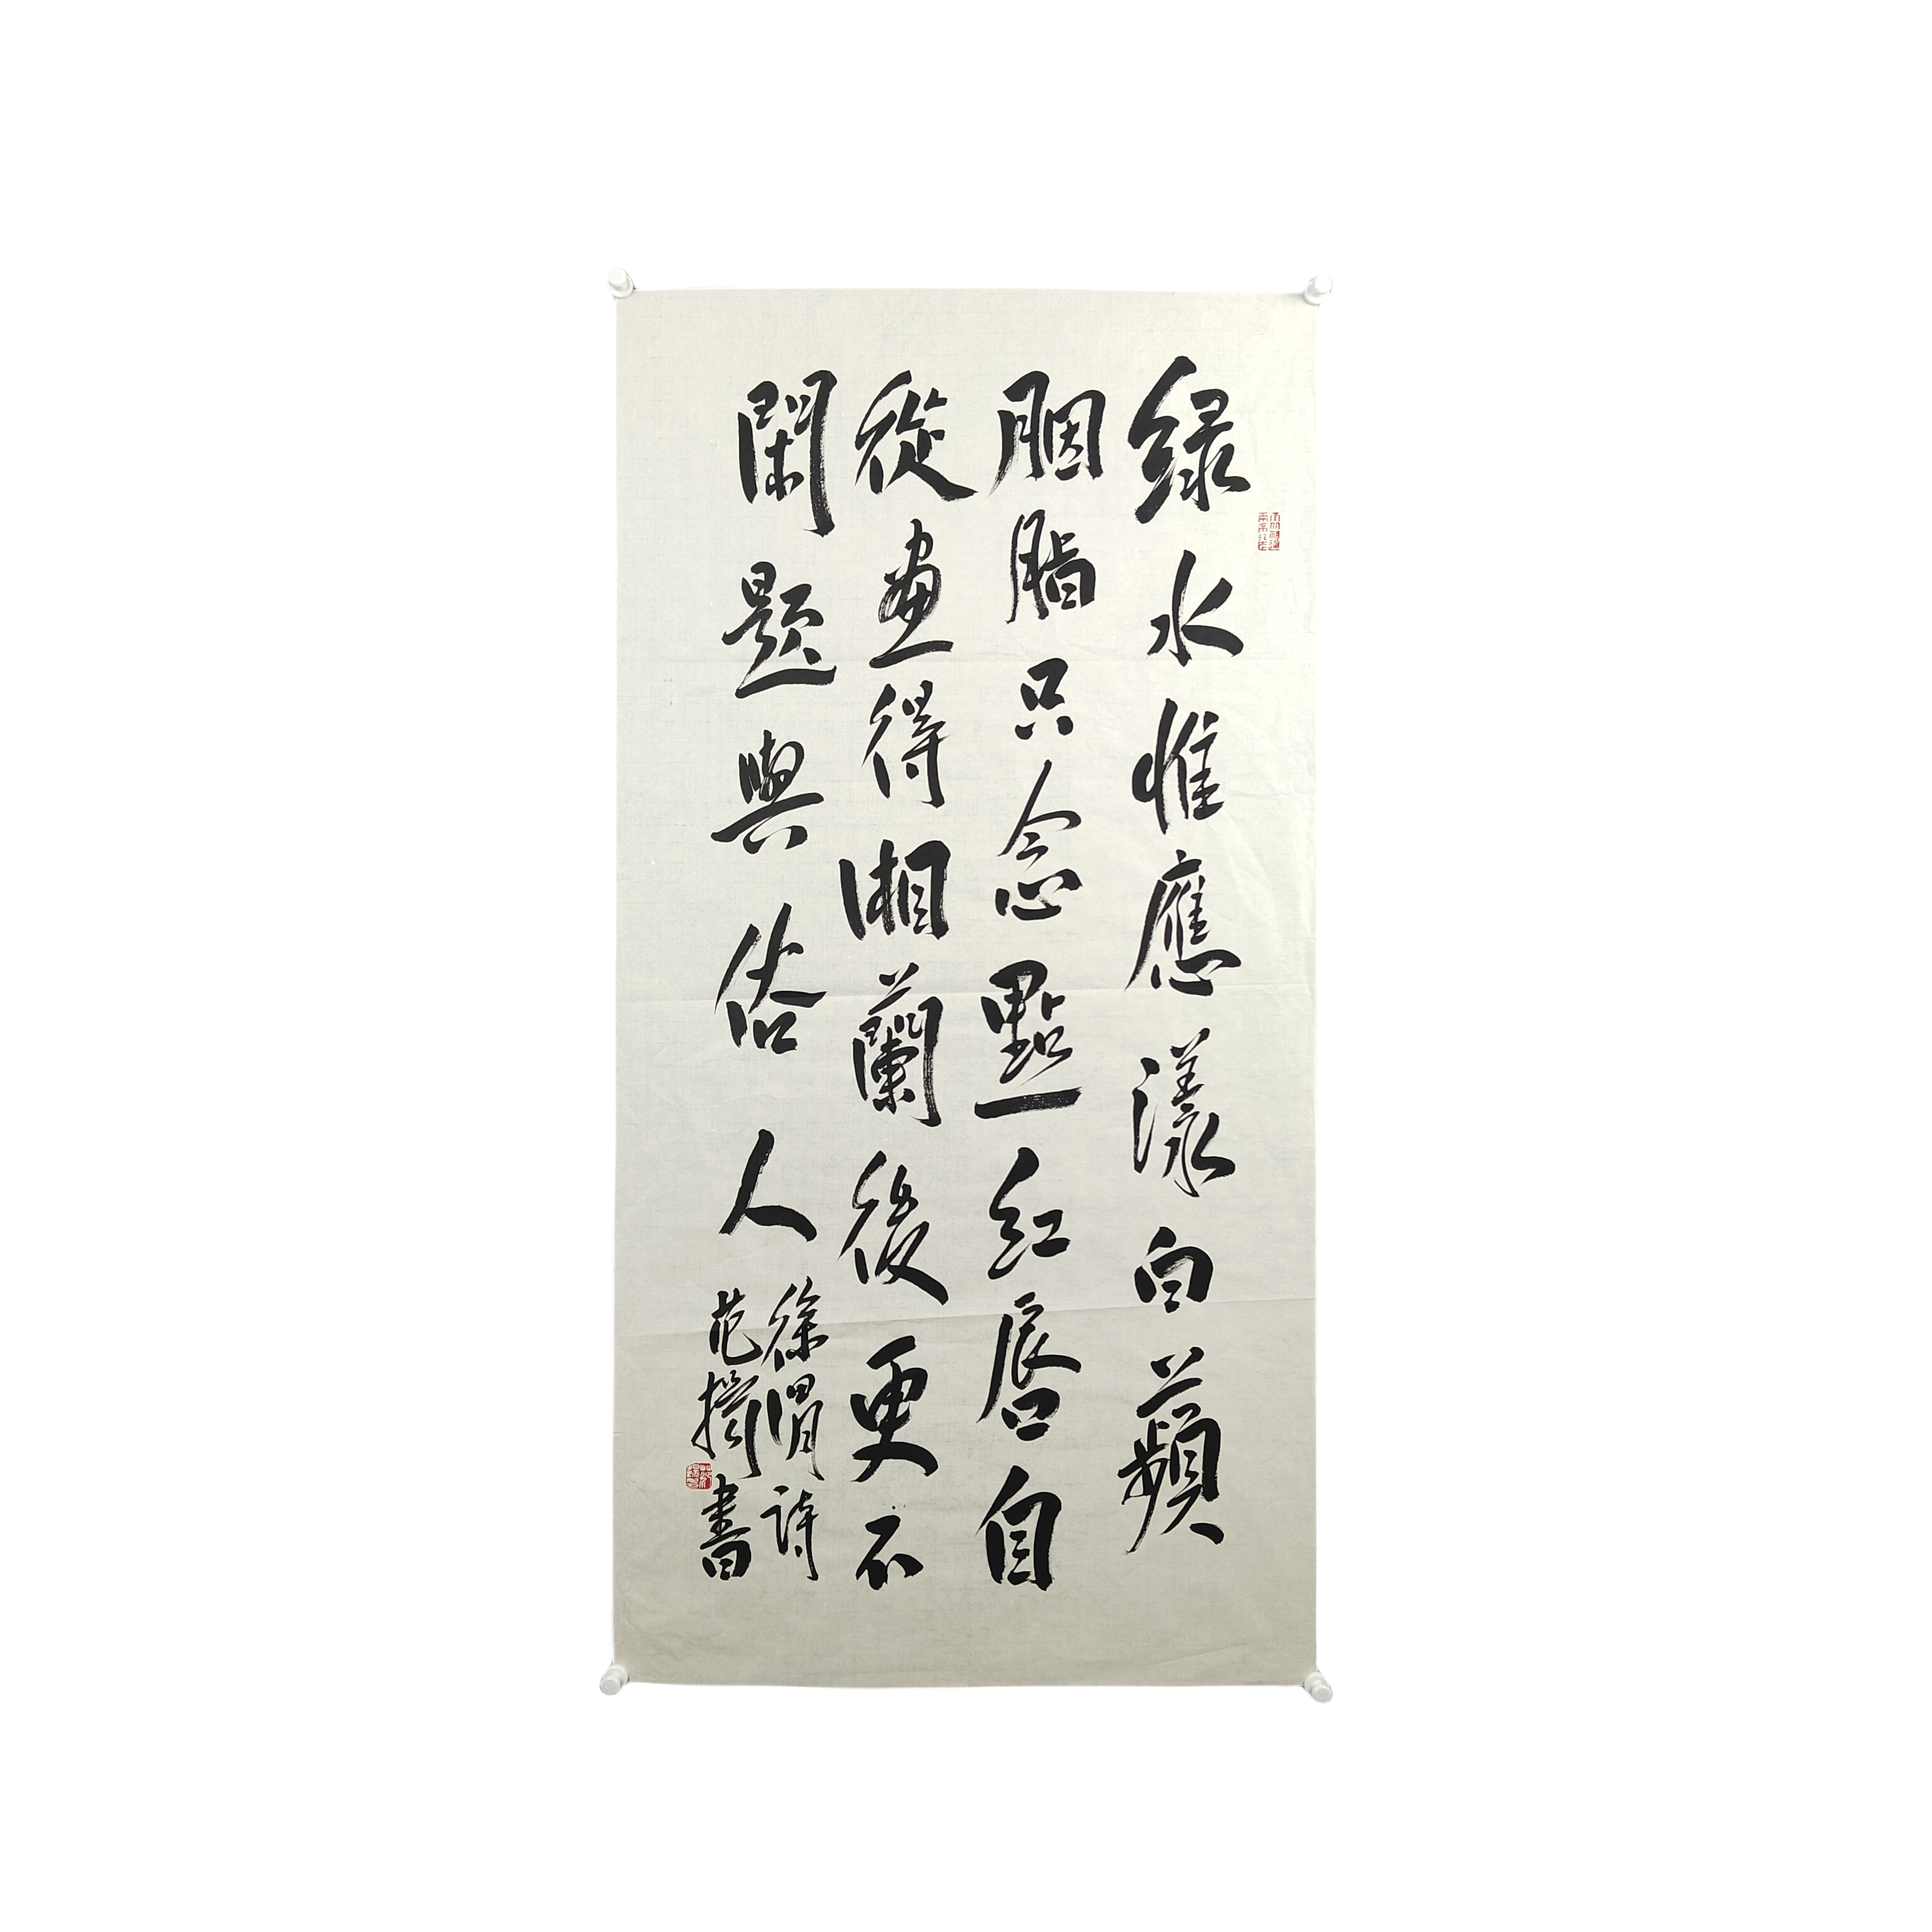 緑水惟應漾白蘋
胭脂只念點紅唇自
從畫得湘蘭後更不
閑題與俗人
徐渭詩
范書